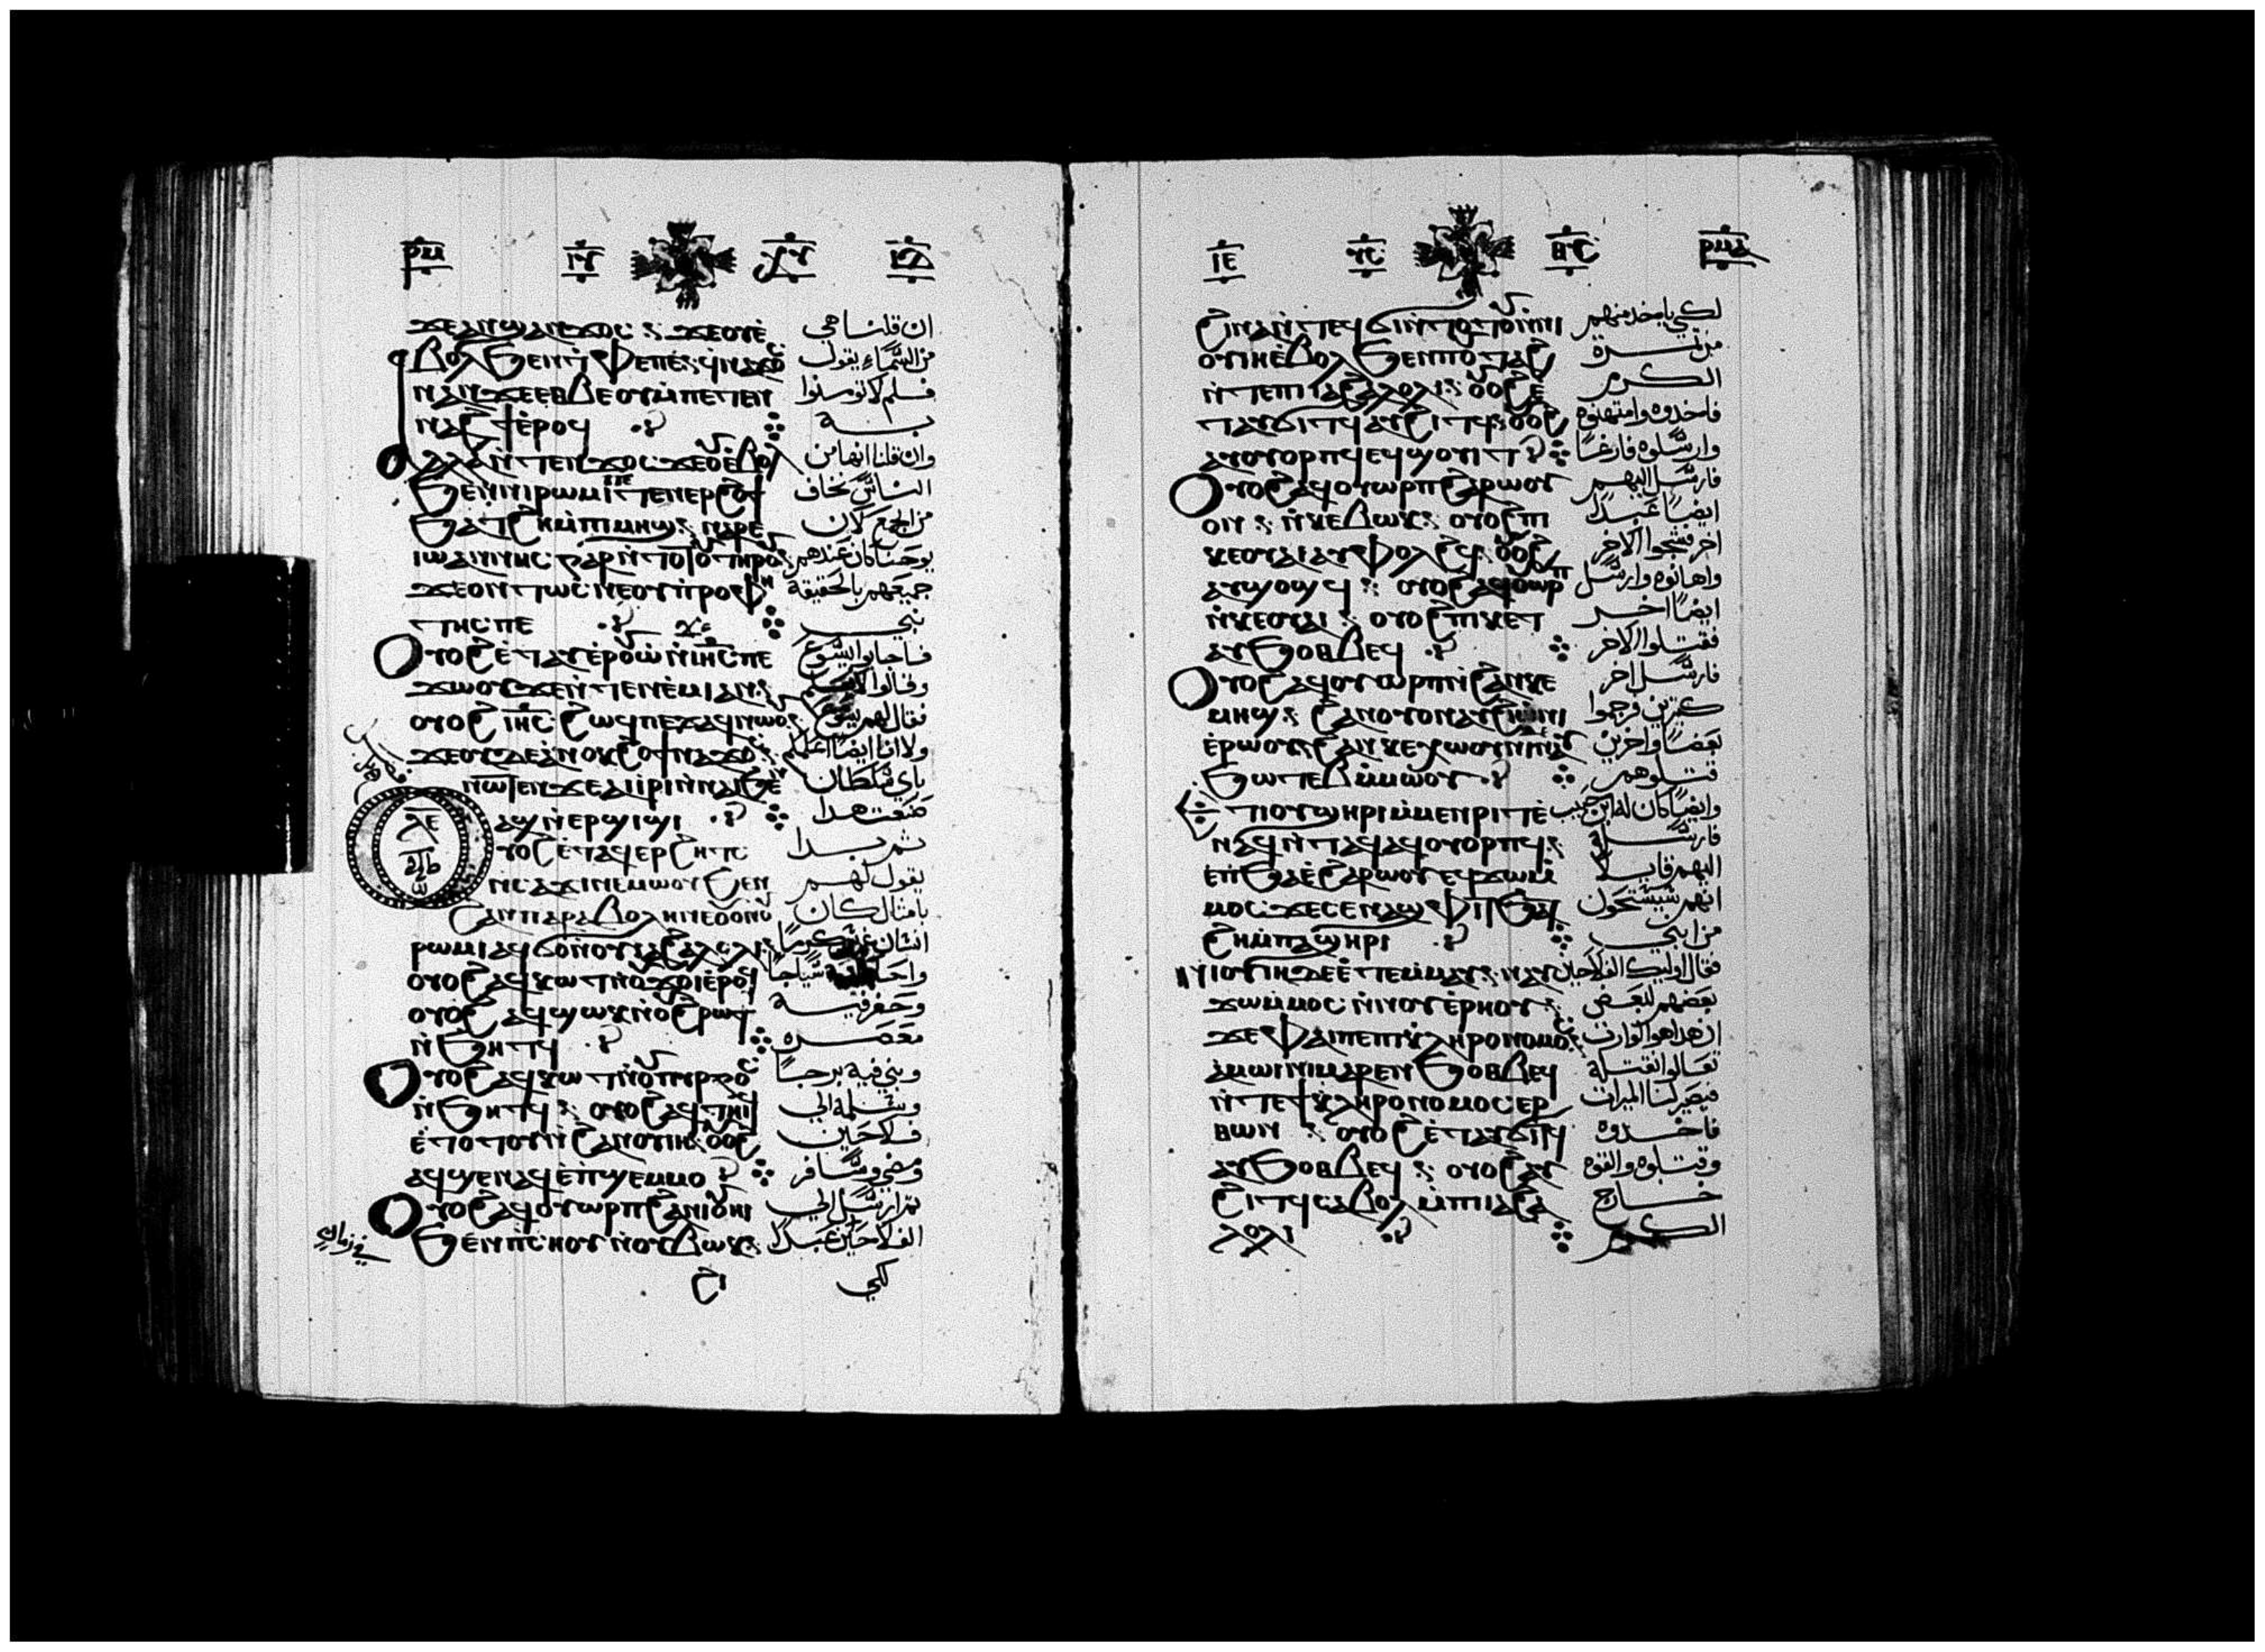 ⲣⲙ ⲓⲥ ⲩⲥ
ϫⲉⲁⲛϣⲁⲛϫⲟⲥ ϫⲉⲟⲩⲉ̀
ⲃⲟⲗϧⲉⲛⲧⲫⲉⲡⲉ ϥⲛⲁϫⲟⲥ
ⲛⲁⲛϫⲉⲉⲑⲃⲉⲟⲩⲙ̀ⲡⲉⲧⲉⲛ
ⲛⲁϩϯⲉ̀ⲣⲟϥ
ⲁⲗⲗⲁⲛ̀ⲧⲉⲛϫⲟⲥϫⲉⲟⲩⲉ̀ⲃⲟⲗ
ϧⲉⲛⲛⲓⲣⲱⲙⲓⲡⲉ ⲧⲉⲛⲉⲣϩⲟϯ
ϧⲁⲧϩⲏⲙ̀ⲡⲓⲙⲏϣ ⲛⲁⲣⲉ
ⲓⲱⲁⲛⲛⲏⲥⲅⲁⲣⲛ̀ⲧⲟⲧⲟⲩⲧⲏⲣⲟⲩ
ϫⲉⲟⲛⲧⲱⲥⲛⲉⲟⲩⲡ̀ⲣⲟⲫⲏ
ⲧⲏⲥⲡⲉ
ⲟⲩⲟϩⲉ̀ⲧⲁⲩⲉⲣⲟⲩⲱ̀ⲛ̀ⲓⲏⲥⲡⲉ
ϫⲱⲟⲩϫⲉⲛ̀ⲧⲉⲛⲉ̀ⲙⲓⲁⲛ
ⲟⲩⲟϩⲓⲏⲥ ϩⲱϥⲡⲉϫⲁϥⲛⲱⲟⲩ
ϫⲉⲟⲩⲇⲉⲁⲛⲟⲕϩⲱϯⲛⲁϫⲟⲥ
ⲛⲱⲧⲉⲛϫⲉⲁⲓⲓⲣⲓⲛ̀ⲛⲁⲓϧⲉⲛ
ⲁϣⲛ̀ⲉⲣϣⲓϣⲓ
ⲗⲉ
ⲟⲩⲟϩⲉ̀ⲧⲁϥⲉⲣϩⲏⲧⲥ
ⲛ̀ⲥⲁϫⲓⲛⲉⲙⲱⲟⲩϧⲉⲛ
ϩⲁⲛⲡⲁⲣⲁⲃⲟⲗⲏⲛⲉⲟⲩⲟⲛⲟⲩ
ⲣⲱⲙⲓⲁϥϭⲟⲛⲟⲩⲓⲁϩⲁⲗⲟⲗⲓ
ⲟⲩⲟϩⲁϥⲕⲱϯⲛⲟⲩϫⲟⲓⲉ̀ⲣⲟϥ
ⲟⲩⲟϩⲁϥϣⲱⲕⲛ̀ⲟⲩϩⲣⲱⲧ
ⲛ̀ϧⲏⲧϥ
ⲟⲩⲟϩⲁϥⲕⲱⲧⲛ̀ⲟⲩⲡⲩⲣⲅⲟⲥ
ⲛ̀ϧⲏⲧϥ ⲟⲩⲟϩⲁϥⲧⲏⲓϥ
ⲉ̀ⲧⲟⲧⲟⲩⲛ̀ϩⲁⲛⲟⲩⲓⲏ ⲟⲩⲟϩ
ⲁϥϣⲉⲛⲁϥⲉ̀ⲡ̀ϣⲉⲙⲙⲟ
ⲟⲩⲟϩⲁϥⲟⲩⲱⲣⲡϩⲁⲛⲓⲟⲩⲏⲓ
ϧⲉⲛⲡⲥⲏⲟⲩⲛ̀ⲟⲩⲃⲱⲕ
ان قلنا هي
من السماء يقول
فلم لا تومنوا
به
وان قلنا انها من
الناس نخاف
من الجمع لان
يوحنا كان عندهم
جميعهم بالحقيقة
نبي
فاجابوا ليسوع
وقالوا
فقال لهم يسوع
ولا انا ايضا اعلمكم
باي سلطان
صنعت هدا
ثم بدا
يقول لهم
بامثال كان
انسان غرس كرما
سياجا
وحفر فيه
معصره
وبني فيه برجا
وسلمه الي
فلاحين
ومضي وسافر
ثم ارسل الي
الفلاحين عبدا
في زمان
لكي
ⲓⲉ ⲩⲥ ⲑⲥ ⲣⲙⲁ
ϩⲓⲛⲁⲛ̀ⲧⲉϥϭⲓⲛ̀ⲧⲟⲧⲟⲩⲛ̀ⲛⲓ
ⲟⲩⲓⲏⲉ̀ⲃⲟⲗϧⲉⲛⲡⲟⲩⲧⲁϩ
ⲛ̀ⲧⲉⲡⲓⲓⲁϩⲁⲗⲟⲗⲓ ⲟⲩⲟϩⲉ̀
ⲧⲁⲩϭⲓⲧϥⲁⲩϩⲓⲧϥ ⲟⲩⲟϩ
ⲁⲩⲟⲩⲟⲣⲡϥⲉϥϣⲟⲩⲓⲧ
ⲟⲩⲟϩⲁϥⲟⲩⲱⲣⲡϩⲁⲣⲱⲟⲩ
ⲟⲛ ⲛ̀ⲕⲉⲃⲱⲕ ⲟⲩⲟϩⲡⲓ
ⲕⲉⲟⲩⲁⲓⲁⲩⲫⲟⲗϩϥ ⲟⲩⲟϩ
ⲁⲩϣⲟϣϥ ⲟⲩⲟϩⲁϥⲟⲩⲱⲣⲡ
ⲛ̀ⲕⲉⲟⲩⲁⲓ ⲟⲩⲟϩⲡⲓⲕⲉⲧ
ⲁⲩϧⲟⲑⲃⲉϥ
ⲟⲩⲟϩⲁϥⲟⲩⲱⲣⲡⲛ̀ϩⲁⲛⲕⲉ
ⲙⲏϣ ϩⲁⲛⲟⲩⲟⲛⲁⲩϩⲓⲱ̀ⲛⲓ
ⲉ̀ⲣⲱⲟⲩ ϩⲁⲛⲕⲉⲭⲱⲟⲩⲛⲓⲛⲁⲩ
ϧⲱⲧⲉⲃⲙ̀ⲙⲱⲟⲩ
ⲉⲧⲓⲟⲩϣⲏⲣⲓⲙ̀ⲙⲉⲛⲣⲓⲧⲡⲉ
ⲛⲁϥⲛ̀ⲧⲁϥⲁϥⲟⲩⲟⲣⲡϥ
ⲉⲡϧⲁⲉ̀ϩⲁⲣⲱⲟⲩⲉϥϫⲱⲙ̀
ⲙⲟⲥϫⲉⲥⲉⲛⲁϣⲫⲓⲧϧⲁⲧ
ϩⲏⲙ̀ⲡⲁϣⲏⲣⲓ
ⲛⲓⲟⲩⲓⲏⲇⲉⲉ̀ⲧⲉⲙ̀ⲙⲁⲩ ⲛⲁⲩ
ϫⲱⲙ̀ⲙⲟⲥⲛ̀ⲛⲟⲩⲉ̀ⲣⲏⲟⲩ
ϫⲉⲫⲁⲓⲡⲉⲡⲓⲕⲗⲏⲣⲟⲛⲟⲙⲟⲥ
ⲁⲙⲱⲓⲛⲓⲙⲁⲣⲉⲛϧⲟⲑⲃⲉϥ
ⲛ̀ⲧⲉϯⲕⲗⲏⲣⲟⲛⲟⲙⲟⲥⲉⲣ
ⲑⲱⲛ ⲟⲩⲟϩⲉ̀ⲧⲁⲩϭⲓⲧϥ
ⲁⲩϧⲟⲑⲃⲉϥ ⲟⲩⲟϩⲁⲩ
ϩⲓⲧϥⲥⲁⲃⲟⲗⲙ̀ⲡⲓⲓⲁϩⲁ
ⲗⲟⲗⲓ
لكي ياخد منهم
من ثمرة
الكرم
فاخدوه وامتهنوه
وارسلوه فارغا
فارسل اليهم
ايضا عبدا
اخر فشجوا الاخر
واهانوه وارسل
ايضا اخر
فقتلوا الاخر
فارسل اخر
كثيرين فرجموا
بعضا واخرين
قتلوهم
وايضا كان له ابن حبيب
فارسله
اليهم قايلا
انهم سيستحون
من ابني
فقال اوليك الفلاحين
بعضهم لبعض
ان هدا هو الوارث
تعالوا نقتله
فيصير لنا الميراث
فاخدوه
وقتلوه والقوه
خارج
الكرم